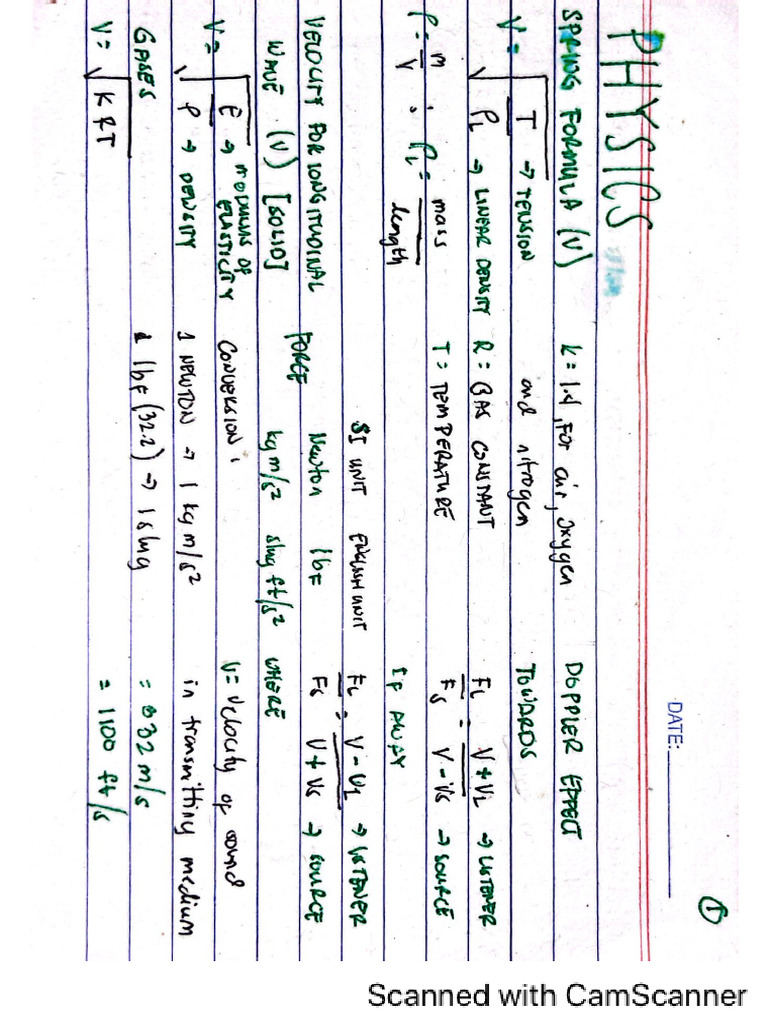 DATE:
①
PHYSICS
SPRING FORMULA (V)
V = √ T → TENSION
ρL → LINEAR DENSITY
ρ = m/V ; ρL = mass/length
VELOCITY FOR LONGITUDINAL
WAVE (V) [SOLID]
V = √ E → MODULUS OF ELASTICITY
ρ → DENSITY
GASES
V = √ KRT
k = 1.4, FOR air, oxygen
and nitrogen
R = GAS CONSTANT
T = TEMPERATURE
SI UNIT ENGLISH UNIT
FORCE Newton lbF
kg m/s² slug ft/s²
CONVERSION:
1 NEWTON → 1 kg m/s²
1 lbF (32.2) → 1 slug
DOPPLER EFFECT
TOWARDS
FL/Fs = V + VL → LISTENER
V - Vs → SOURCE
IF AWAY
FL/Fs = V - VL → LISTENER
V + Vs → SOURCE
WHERE
V = Velocity of sound
in transmitting medium
= 332 m/s
= 1100 ft/s
Scanned with CamScanner